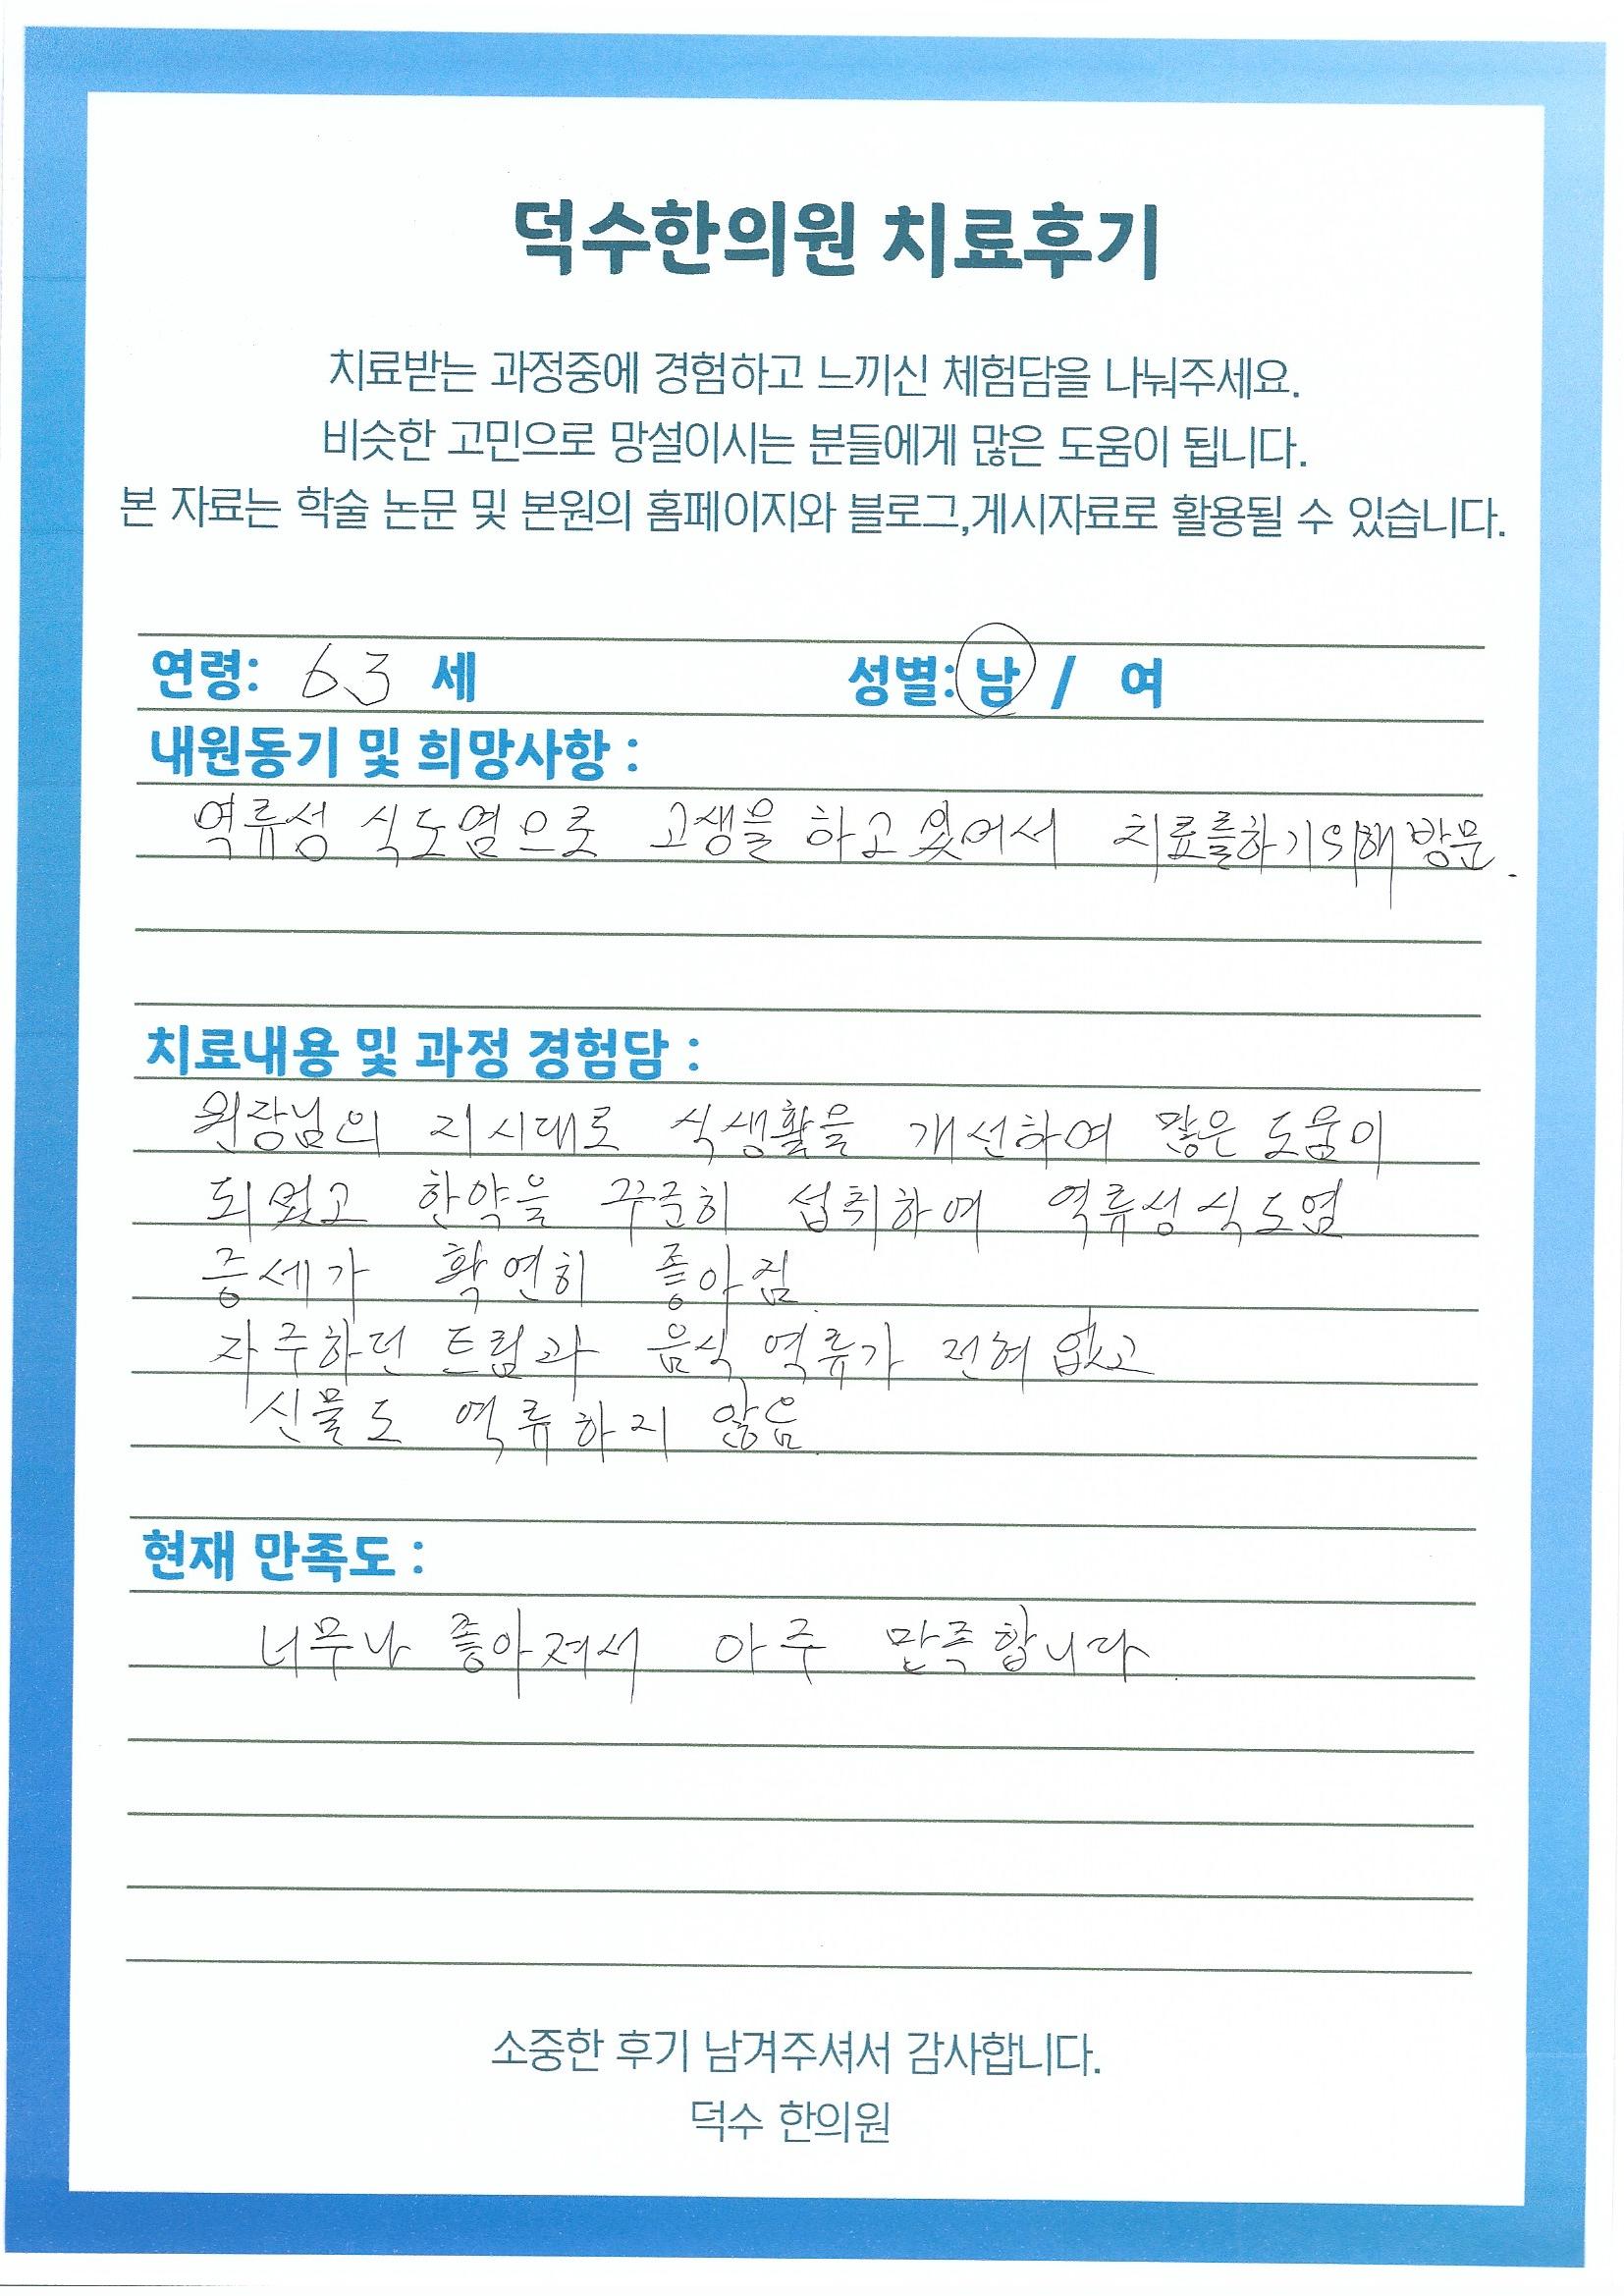 덕수한의원 치료후기
치료받는 과정중에 경험하고 느끼신 체험담을 나눠주세요.
비슷한 고민으로 망설이시는 분들에게 많은 도움이 됩니다.
본 자료는 학술 논문 및 본원의 홈페이지와 블로그,게시자료로 활용될 수 있습니다.
연령: 63 세 성별: 남 / 여
내원동기 및 희망사항 :
역류성 식도염으로 고생을 하고 있어서 치료를하기위해 방문.
치료내용 및 과정 경험담 :
원장님의 지시대로 식생활을 개선하여 많은 도움이
되었고 한약을 꾸준히 섭취하여 역류성 식도염
증세가 확연히 좋아짐.
자주하던 트림과 음식 역류가 전혀 없고
신물도 역류하지 않음.
현재 만족도 :
너무나 좋아져서 아주 만족합니다.
소중한 후기 남겨주셔서 감사합니다.
덕수 한의원